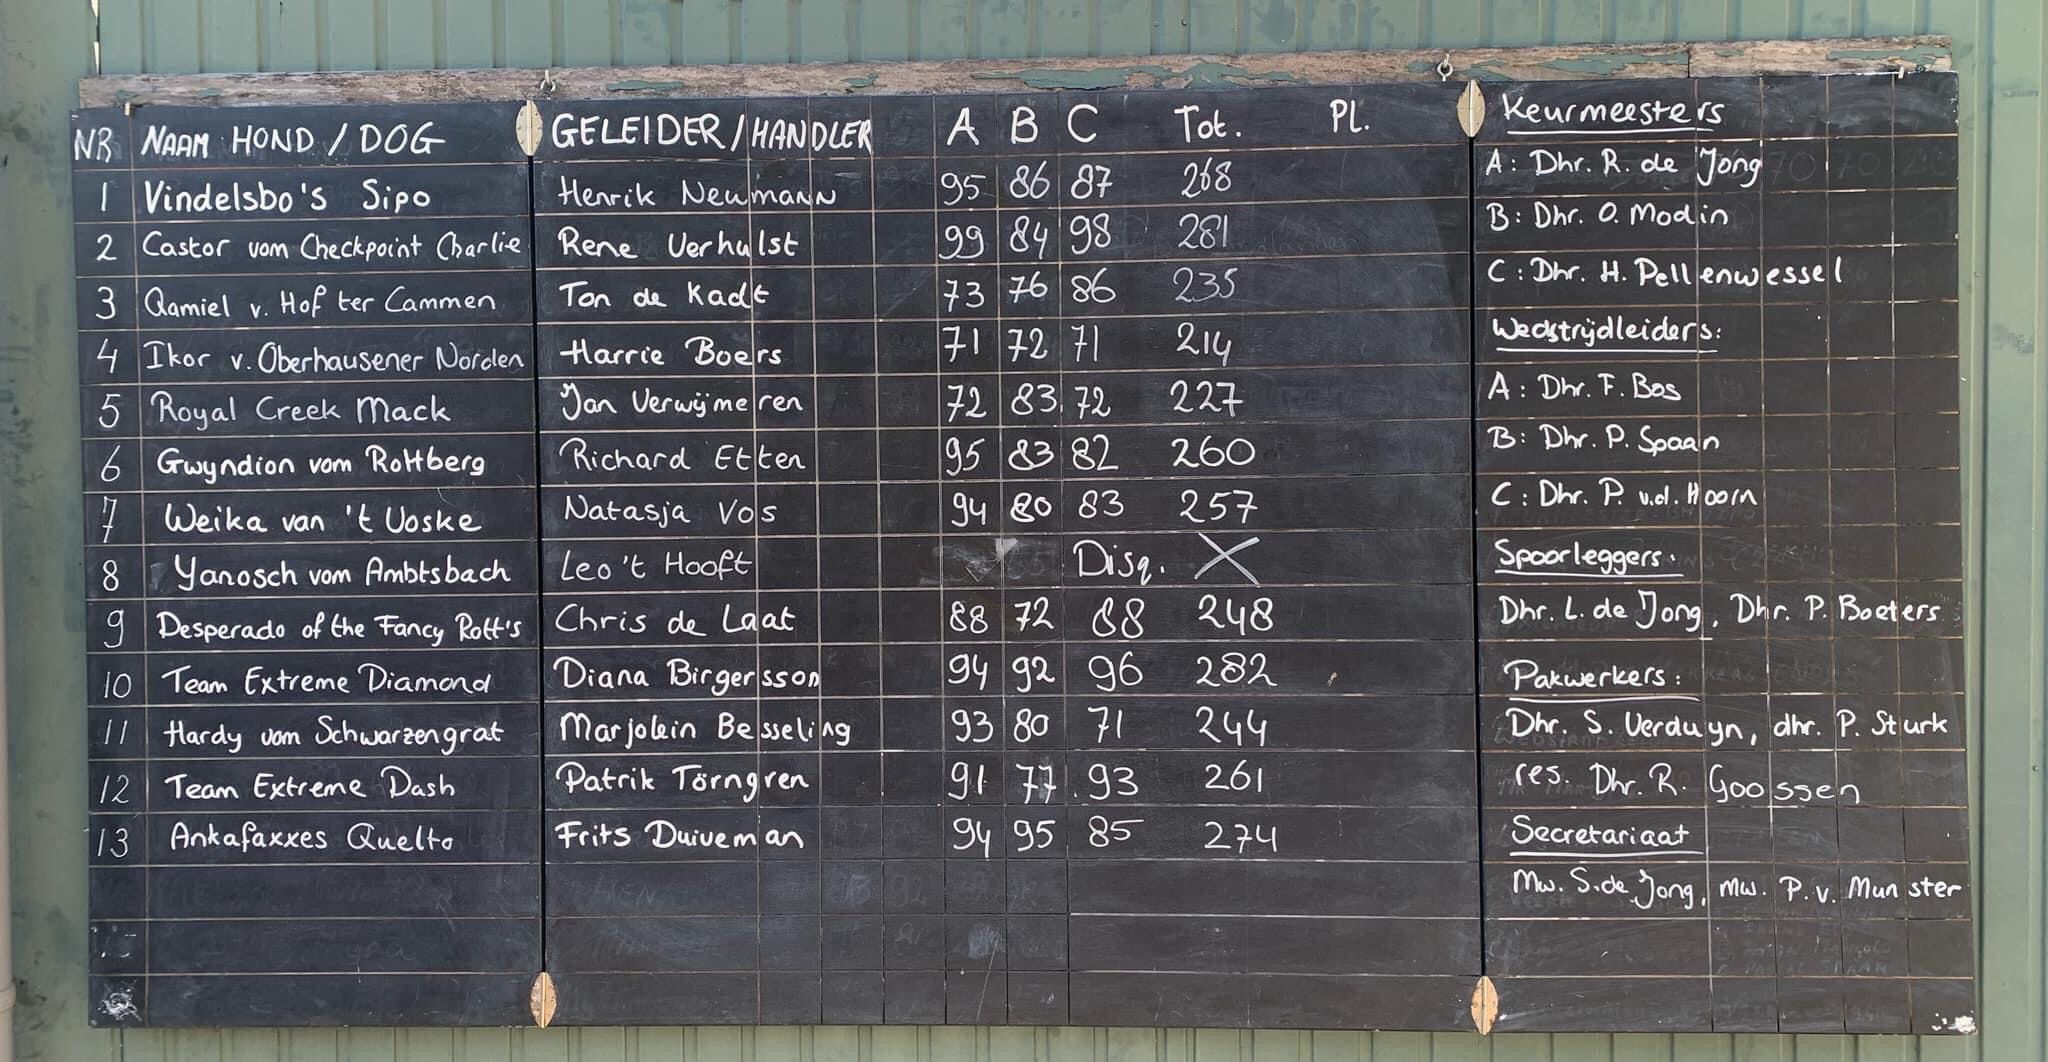 NR NAAM HOND / DOG GELEIDER/HANDLER A B C Tot. Pl.
1 Vindelsbo's Sipo Henrik Neumann 95 86 87 268
2 Castor vom Checkpoint Charlie Rene Verhulst 99 84 98 281
3 Qamiel v. Hof ter Cammen Ton de Kadt 73 76 86 235
4 Ikor v. Oberhausener Norden Harrie Boers 71 72 71 214
5 Royal Creek Mack Jan Verwijmeren 72 83 72 227
6 Gwyndion vom Rottberg Richard Etten 95 83 82 260
7 Weika van 't Voske Natasja Vos 94 80 83 257
8 Yanosch vom Ambtsbach Leo 't Hooft Disq. X
9 Desperado of the Fancy Rott's Chris de Laat 88 72 88 248
10 Team Extreme Diamond Diana Birgersson 94 92 96 282
11 Hardy vom Schwarzengrat Marjolein Besseling 93 80 71 244
12 Team Extreme Dash Patrik Törngren 91 77 93 261
13 Ankafaxxes Quelto Frits Duiveman 94 95 85 274
Keurmeesters
A: Dhr. R. de Jong
B: Dhr. O. Modin
C: Dhr. H. Pellenwessel
Wedstrijdleiders:
A: Dhr. F. Bos
B: Dhr. P. Spaan
C: Dhr. P. v.d. Hoorn
Spoorleggers:
Dhr. L. de Jong, Dhr. P. Boeters
Pakwerkers:
Dhr. S. Verduyn, dhr. P. Sturk
res. Dhr. R. Goossen
Secretariaat
Mw. S. de Jong, mw. P. v. Munster